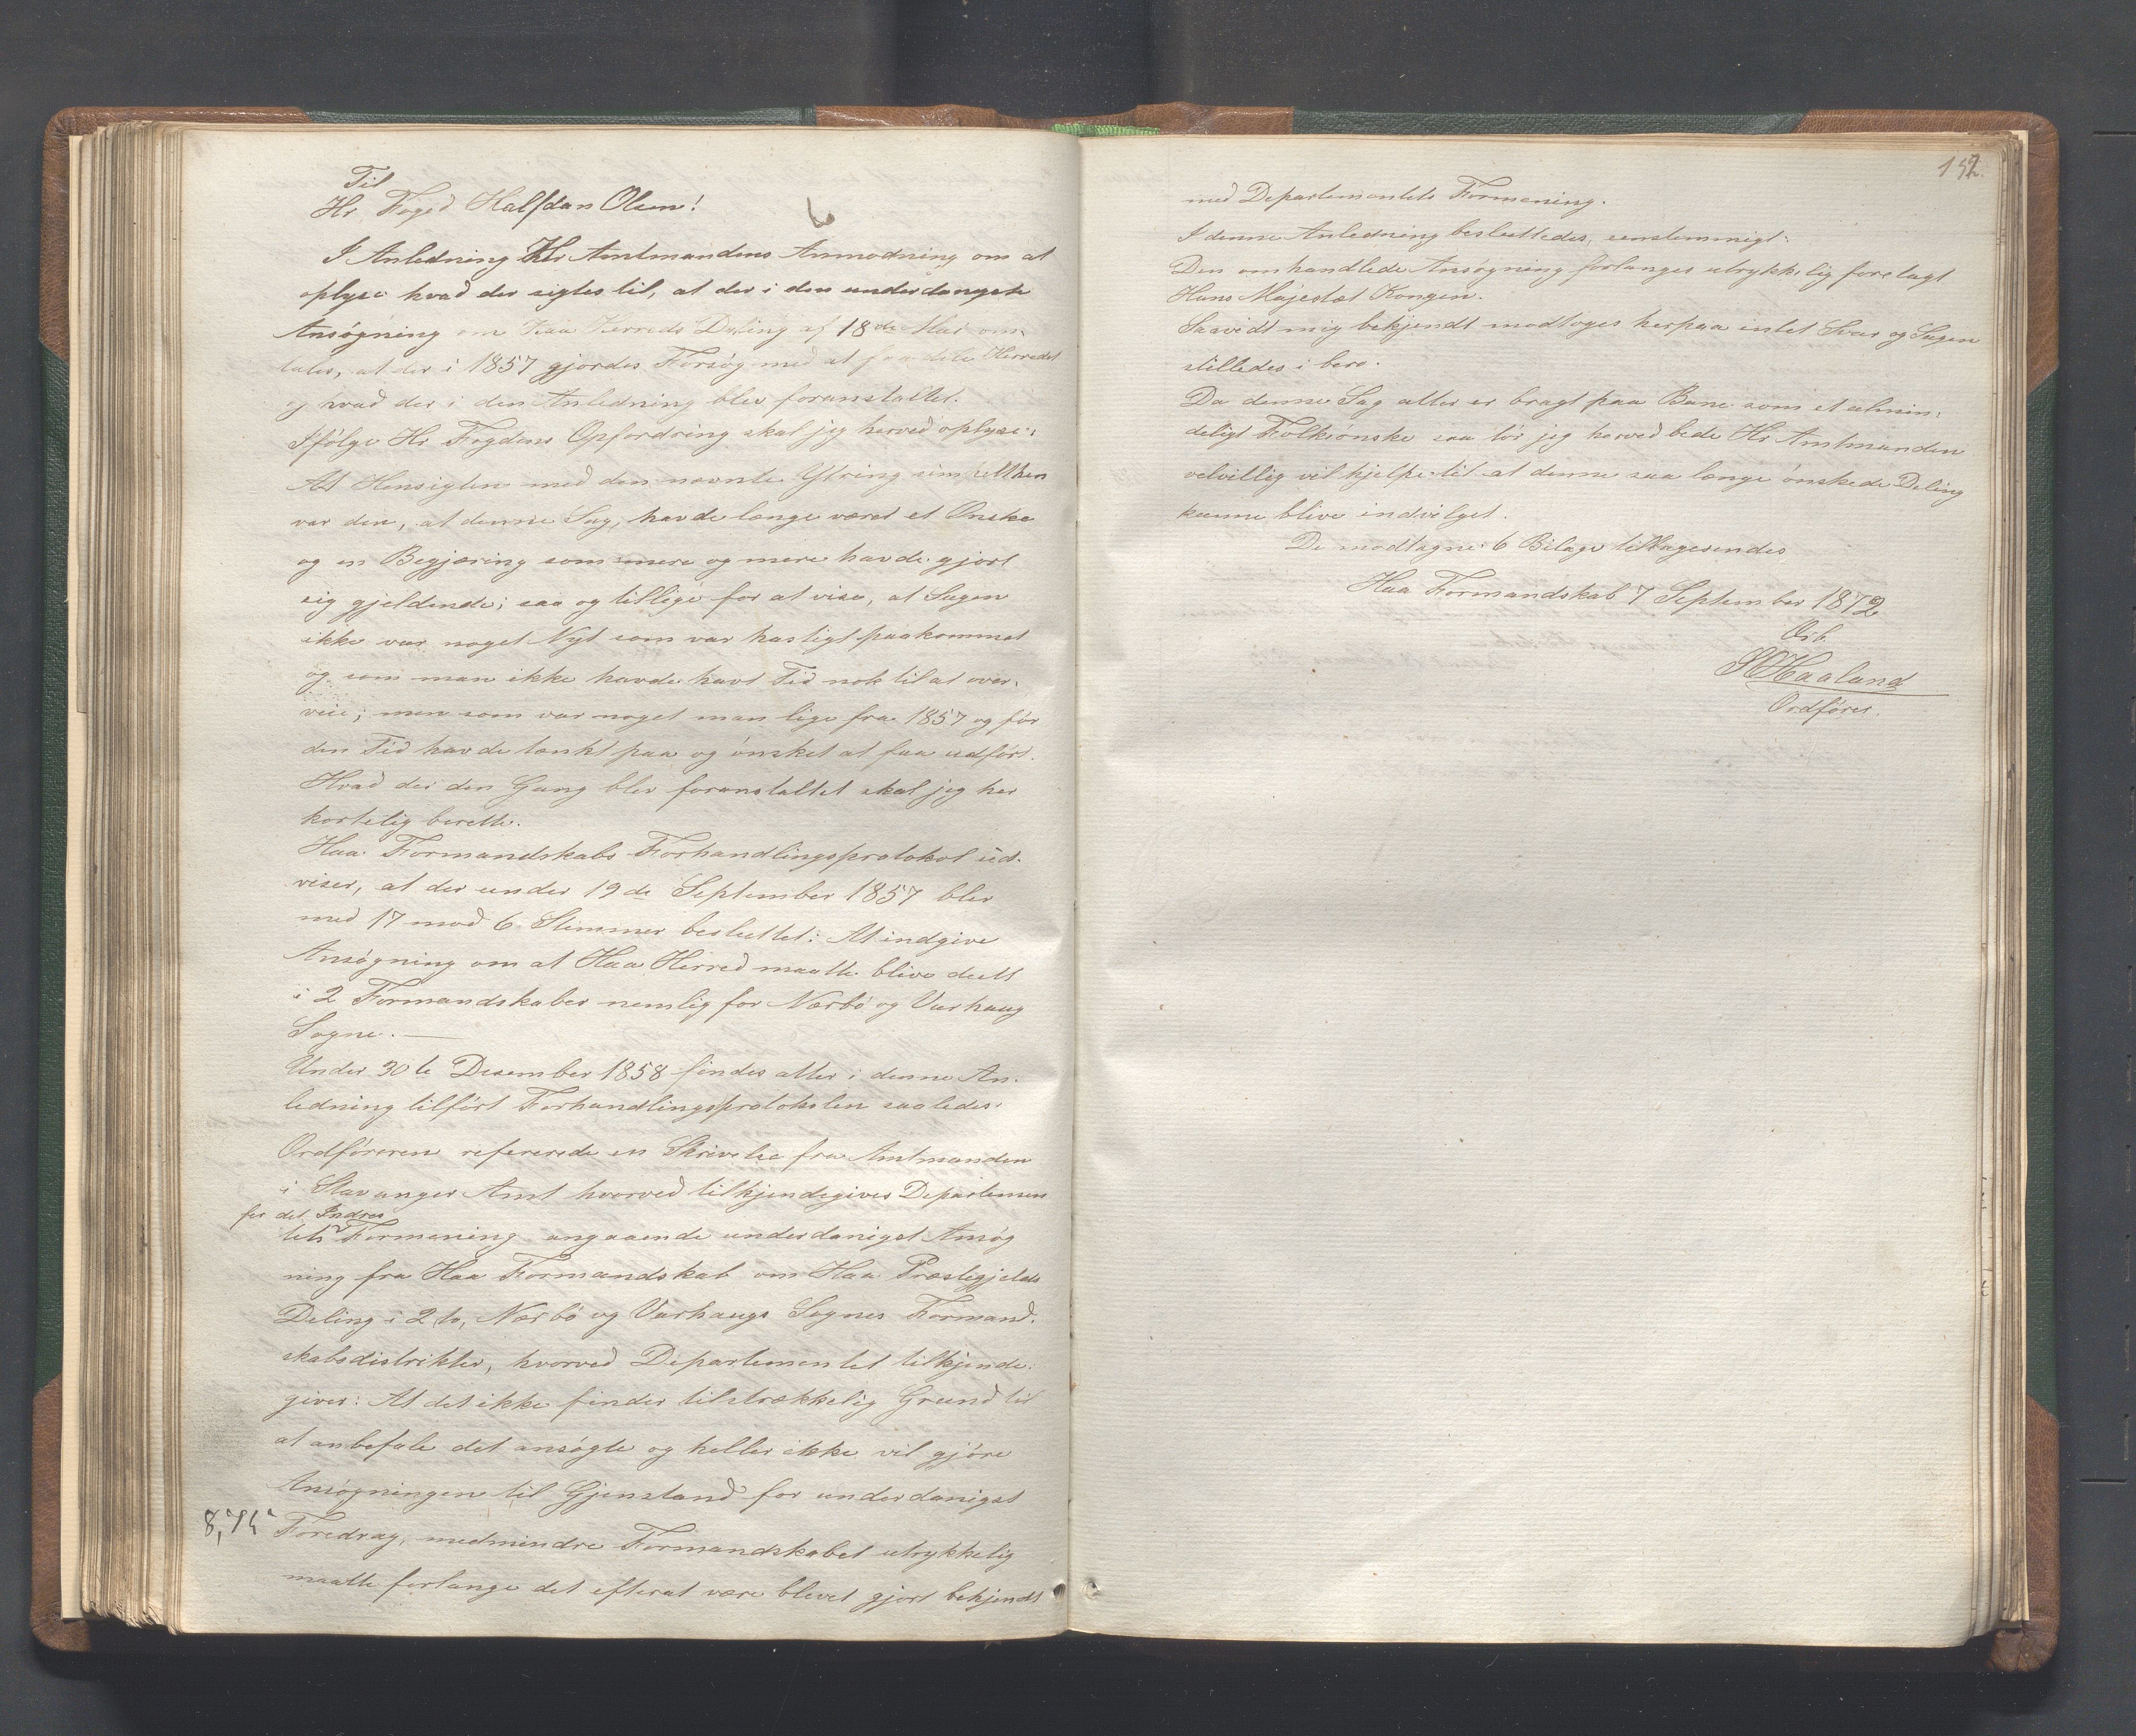 Til
Hr. Foged Halfdan Olsen!
6
I Anledning Hr Amtmandens Anmodning om at
oplyse hvad der sigtes til, at der i den underdanigste
Ansøgning om Haa Herreds Deling af 18de Mai om-
tales, at der i 1857 gjordes Forsøg med at faa dele Herredet
og hvad der i den Anledning blev foranstaltet.
Ifølge Hr Fogdens Opfordring skal jeg herved oplyse:
At Hensigten med den nævnte Ytring simpelthen
var den, at denne Sag, havde længe været et Ønske
og en Begjæring som mere og mere havde gjort
sig gjeldende; saa og tillige for at vise, at Sagen
ikke var noget Nyt som var hastigt paakommet
og som man ikke havde havt Tid nok til at over-
veie; men som var noget man lige fra 1857 og før
den Tid havde tænkt paa og ønsket at faa udført.
Hvad der den Gang blev foranstaltet skal jeg her
kortelig berette.
Haa Formandskabs Forhandlingsprotokol ud-
viser, at der under 19de September 1857 blev
med 17 mod 6 Stimmer besluttet: At indgive
Ansøgning om at Haa Herred maatte blive deelt
i 2 Formandskaber nemlig for Nærbø og Varhaug
Sogne. —
Under 30te Desember 1858 findes atter i denne An-
ledning tilført Forhandlingsprotokolen saaledes:
Ordføreren refererede en Skrivelse fra Amtmanden
i Stavanger Amt hvorved tilkjendegives Departemen
for det Indres
tets Formening angaaende underdanigst Ansøg
ning fra Haa Formandskab om Haa Præstegjelds
Deling i 2to, Nærbø og Varhaugs Sognes Formand-
skabsdistrikter, hvorved Departementet tilkjende-
giver: At det ikke finder tilstrækkelig Grund til
at anbefale det ansøgte og heller ikke vil gjøre
Ansøgningen til Gjenstand for underdanigst
Foredrag, medmindre Formandskabet utrykkelig
maatte forlange det efterat være blevet gjort bekjendt
152.
med Departementets Formening.
I denne Anledning besluttedes, eenstemmigt:
Den omhandlede Ansøgning forlanges utrykkelig forelagt
Hans Majestæt Kongen.
Saavidt mig bekjendt modtoges herpaa intet Svar og Sagen
stilledes i bero.
Da denne Sag atter er bragt paa Bane som et almin-
deligt Folkeønske saa tør jeg herved bede Hr Amtmanden
velvillig vil hjelpe til at denne saa længe ønskede Deling
kunne blive indvilget.
De modtagne 6 Bilage tilbagesendes
Haa Formandskab 7 September 1872
Ærb.
Haaland
Ordfører.